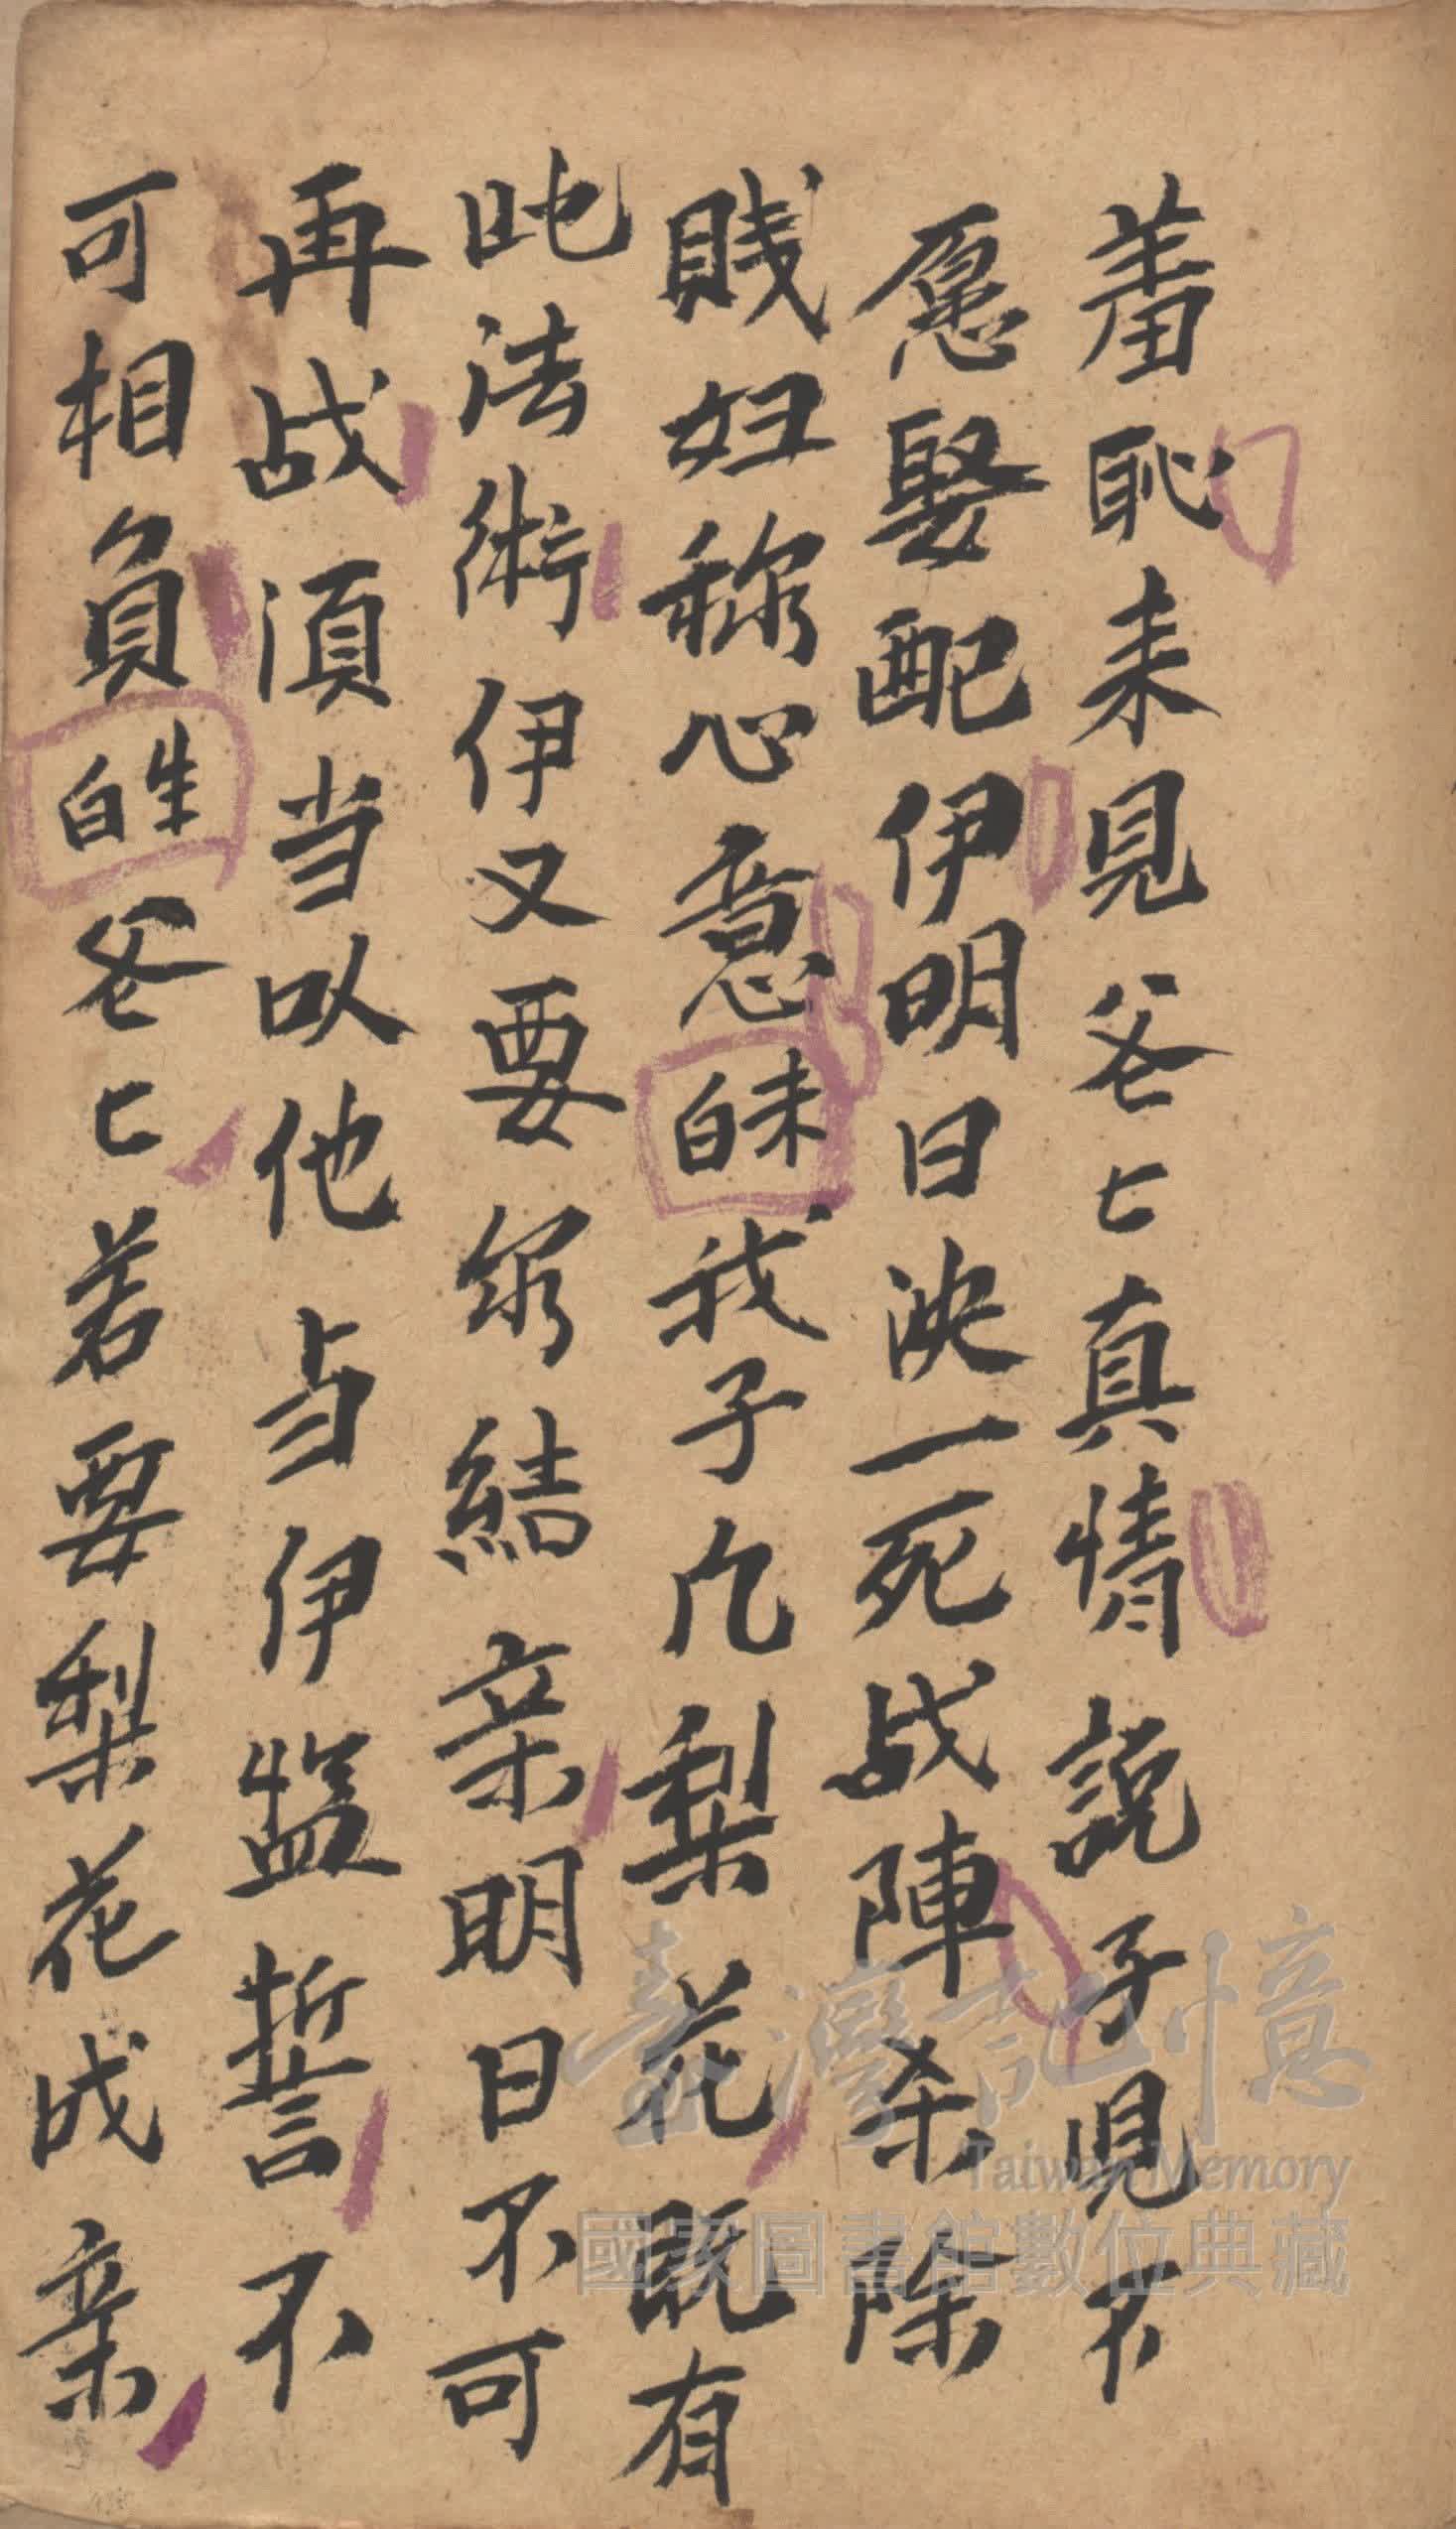 羞恥耒見爸〻真情說子児不
愿娶配伊明日决一死战陣杀除
賎妇称心意白末我子凢梨花既有
此法術伊又要你結亲明日不可
再战須当以他与伊盟誓不
可相負白生爸〻若要梨花成亲
臺灣記憶
Taiwan Memory
國家圖書館數位典藏